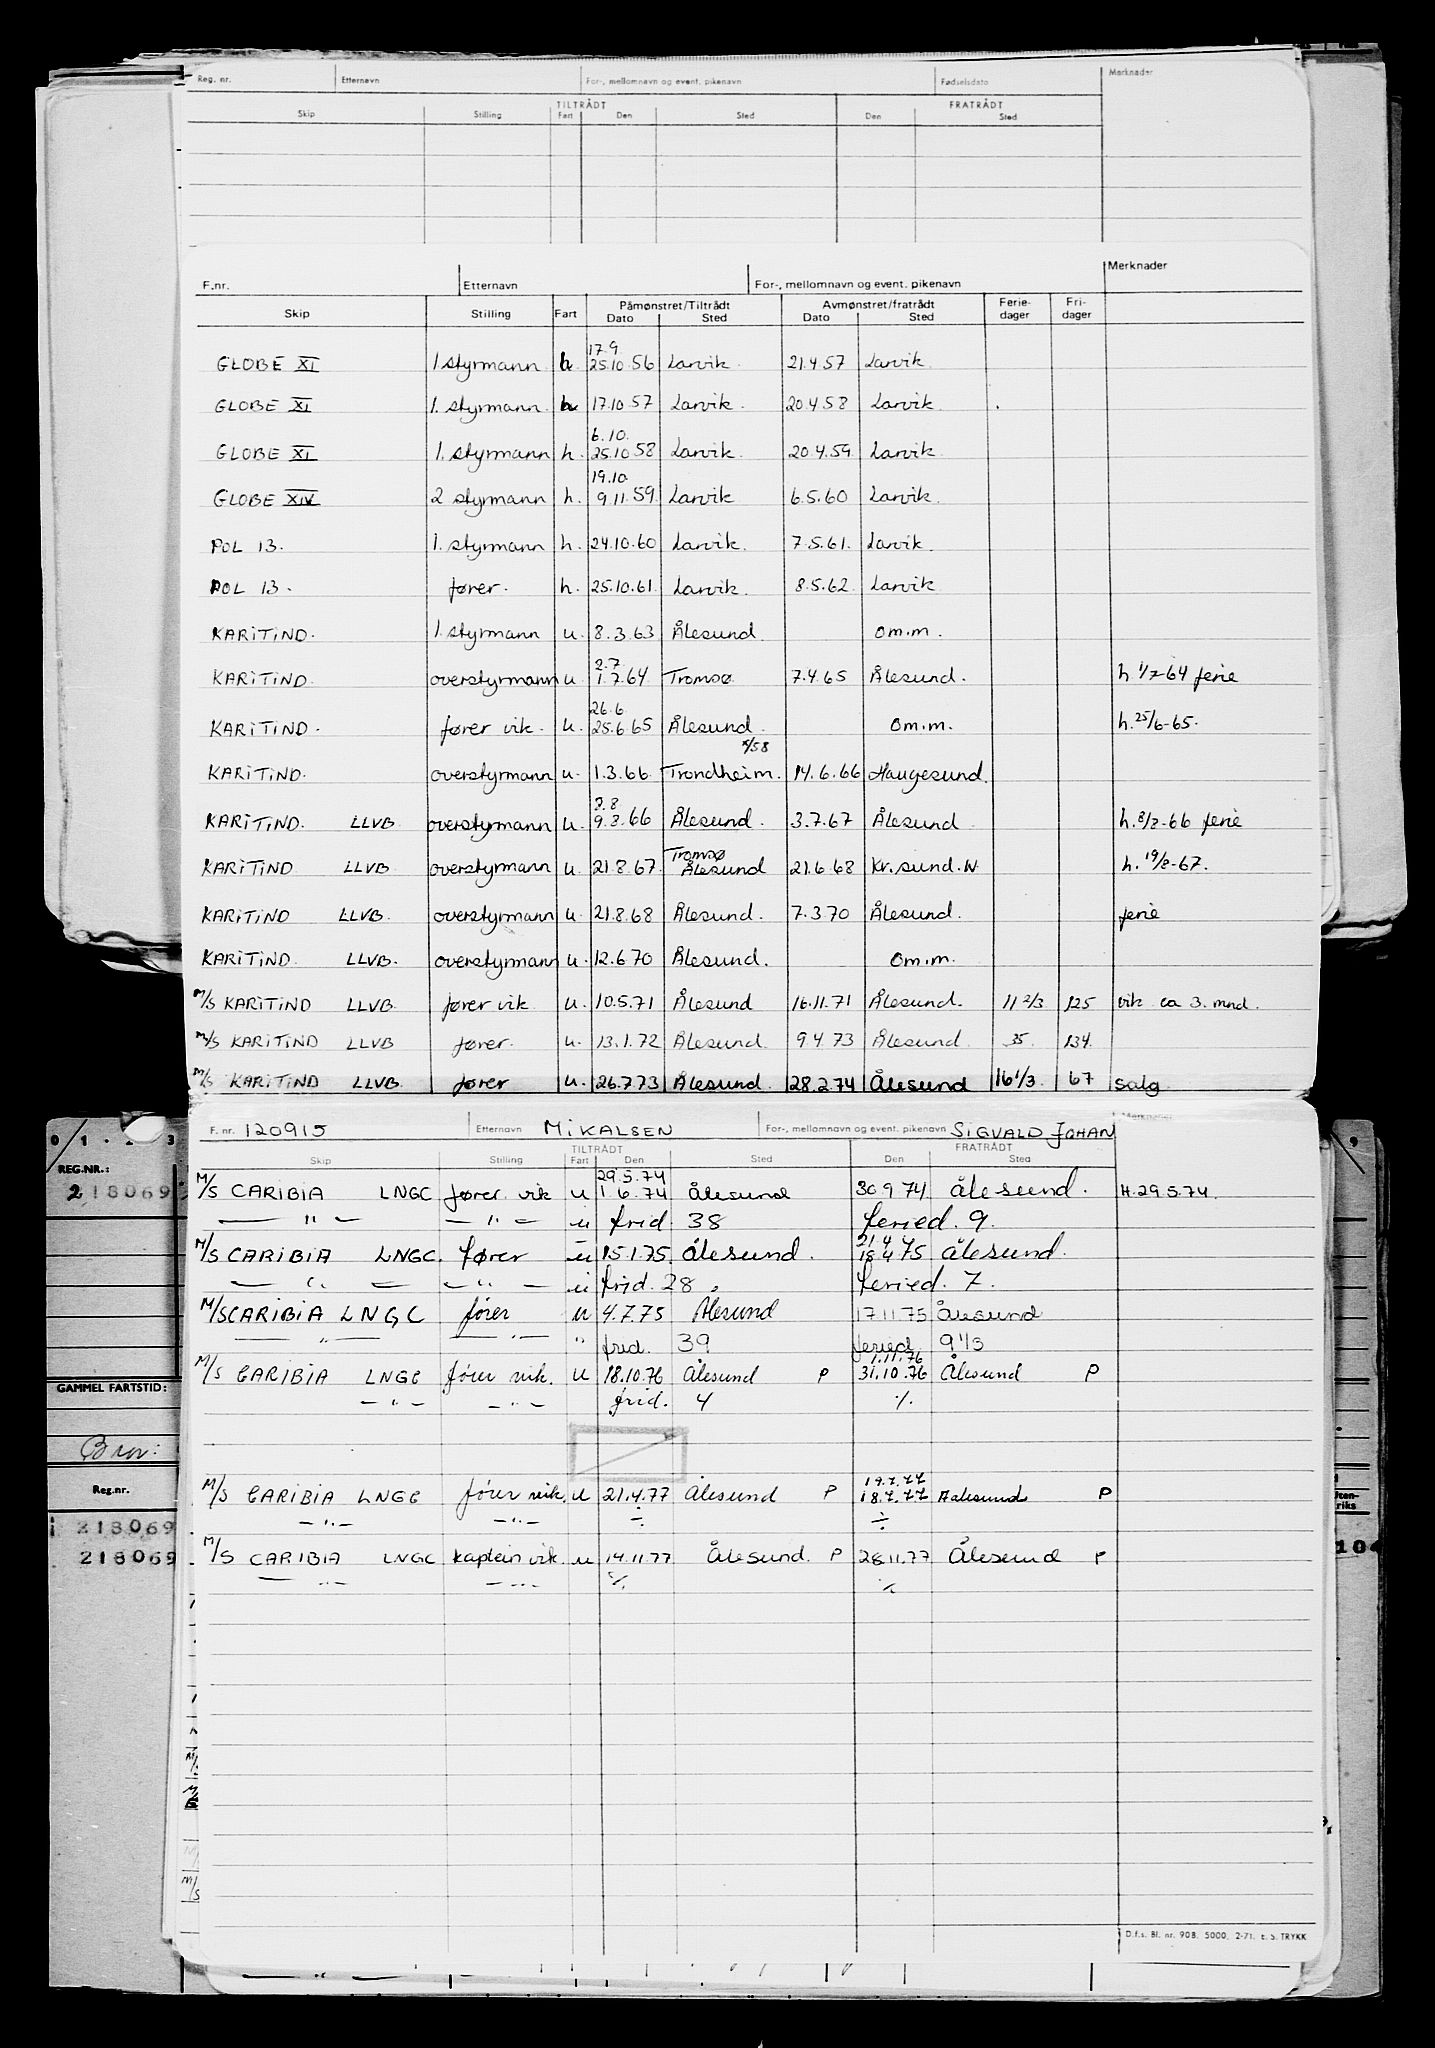 Reg. nr. Etternavn For-, mellomnavn og event. pikenavn Fødselsdato Merknader
TILTRÅDT FRATRÅDT
Skip Stilling Fart Den Sted Den Sted
F.nr. Etternavn For-, mellomnavn og event. pikenavn Merknader
Skip Stilling Fart Påmønstret/Tiltrådt Avmønstret/fratrådt Ferie- Fri-
Dato Sted Dato Sted dager dager
17.9
GLOBE XI 1 styrmann h. 25.10.56 Larvik. 21.4.57 Larvik.
GLOBE XI 1. styrmann h 17.10.57 Larvik. 20.4.58 Larvik
6.10.
GLOBE XI 1. styrmann h. 25.10 58 Larvik. 20.4.59 Larvik
19.10.
GLOBE XIV 2 styrmann h. 9.11.59. Larvik 6.5.60 Larvik.
POL 13. 1. styrmann h. 24.10.60 Larvik. 7.5.61. Larvik.
POL 13. fører. h. 25.10.61. Larvik. 8.5.62. Larvik
KARITIND. 1. styrmann u. 8.3.63 Ålesund. om.m.
2.7
KARITIND. overstyrmann u. 1.7.64. Tromsø. 7.4.65 Ålesund. h. 1/7-64 ferie
26.6.
KARITIND. fører vik. u. 25.6.65 Ålesund. om.m. h. 25/6-65.
KARITIND. overstyrmann u. 1.3.66. Trondheim. 14.6.66 Haugesund.
KARITIND. LLVB. overstyrmann u. 66 Ålesund. 3.7.67 Ålesund h. 8/8-66 ferie
Tromsø
KARITIND LLVB. overstyrmann u. 21.8.67. Ålesund 21.6.68 Kr.sund.N h. 19/8-67.
KARITIND LLVB. overstyrmann u. 21.8.68 Ålesund. 7.3.70 Ålesund. ferie
KARITIND. LLVB. overstyrmann u. 12.6.70 Ålesund. om.m.
M/S KARITIND LLVB. fører vik u. 10.5.71 Ålesund 16.11.71 Ålesund. 11 2/3 125 vik ca 3. mnd.
M/S KARITIND LLVB fører. u. 13.1.72 Ålesund. 9.4.73 Ålesund. 35. 134.
M/S KARITIND LLVB. fører u. 26.7.73 Ålesund. 28.2.74 Ålesund 16 1/3. 67 salg
F. nr. 120915 Etternavn MIKALSEN For-, mellomnavn og event. pikenavn SIGVALD JOHAN Merknader
TILTRÅDT FRATRÅDT
Skip Stilling Fart Den Sted Den Sted
29.5.74
M/S CARIBIA LNGC fører vik u 1.6.74 Ålesund 30.9.74 Ålesund. H. 29.5.74.
— " — — " — u frid. 38 feried. 9.
21.4
M/S CARIBIA LNGC. fører u 15.1.75. Ålesund. 18.4.75 Ålesund.
— " — — " — u frid. 28 feried. 7.
M/S CARIBIA LNGC fører u 4.7.75 Ålesund 17.11.75 Ålesund
— " — — " — " frid. 39 feried. 9 1/3
1.11.76
M/S CARIBIA LNGC fører vik. u 18.10.76 Ålesund P 31.10.76 Ålesund P
— " — — " — frid. 4 %
19.7.77
M/S CARIBIA LNGC fører vik. u 21.4.77 Ålesund P 18.7.77 Aalesund P
— " — — " — ÷ ÷
M/S CARIBIA LNGC kaptein vik. u 14.11.77 Ålesund. P 28.11.77 Ålesund P
— " — — " — % %
0 1 2 3
REG.NR.:
218069
GAMMEL FARTSTID:
Reg.nr.
218069
218069
9
104
D.f.s. Bl. nr. 90B. 5000, 2-71. E. S. TRYKK